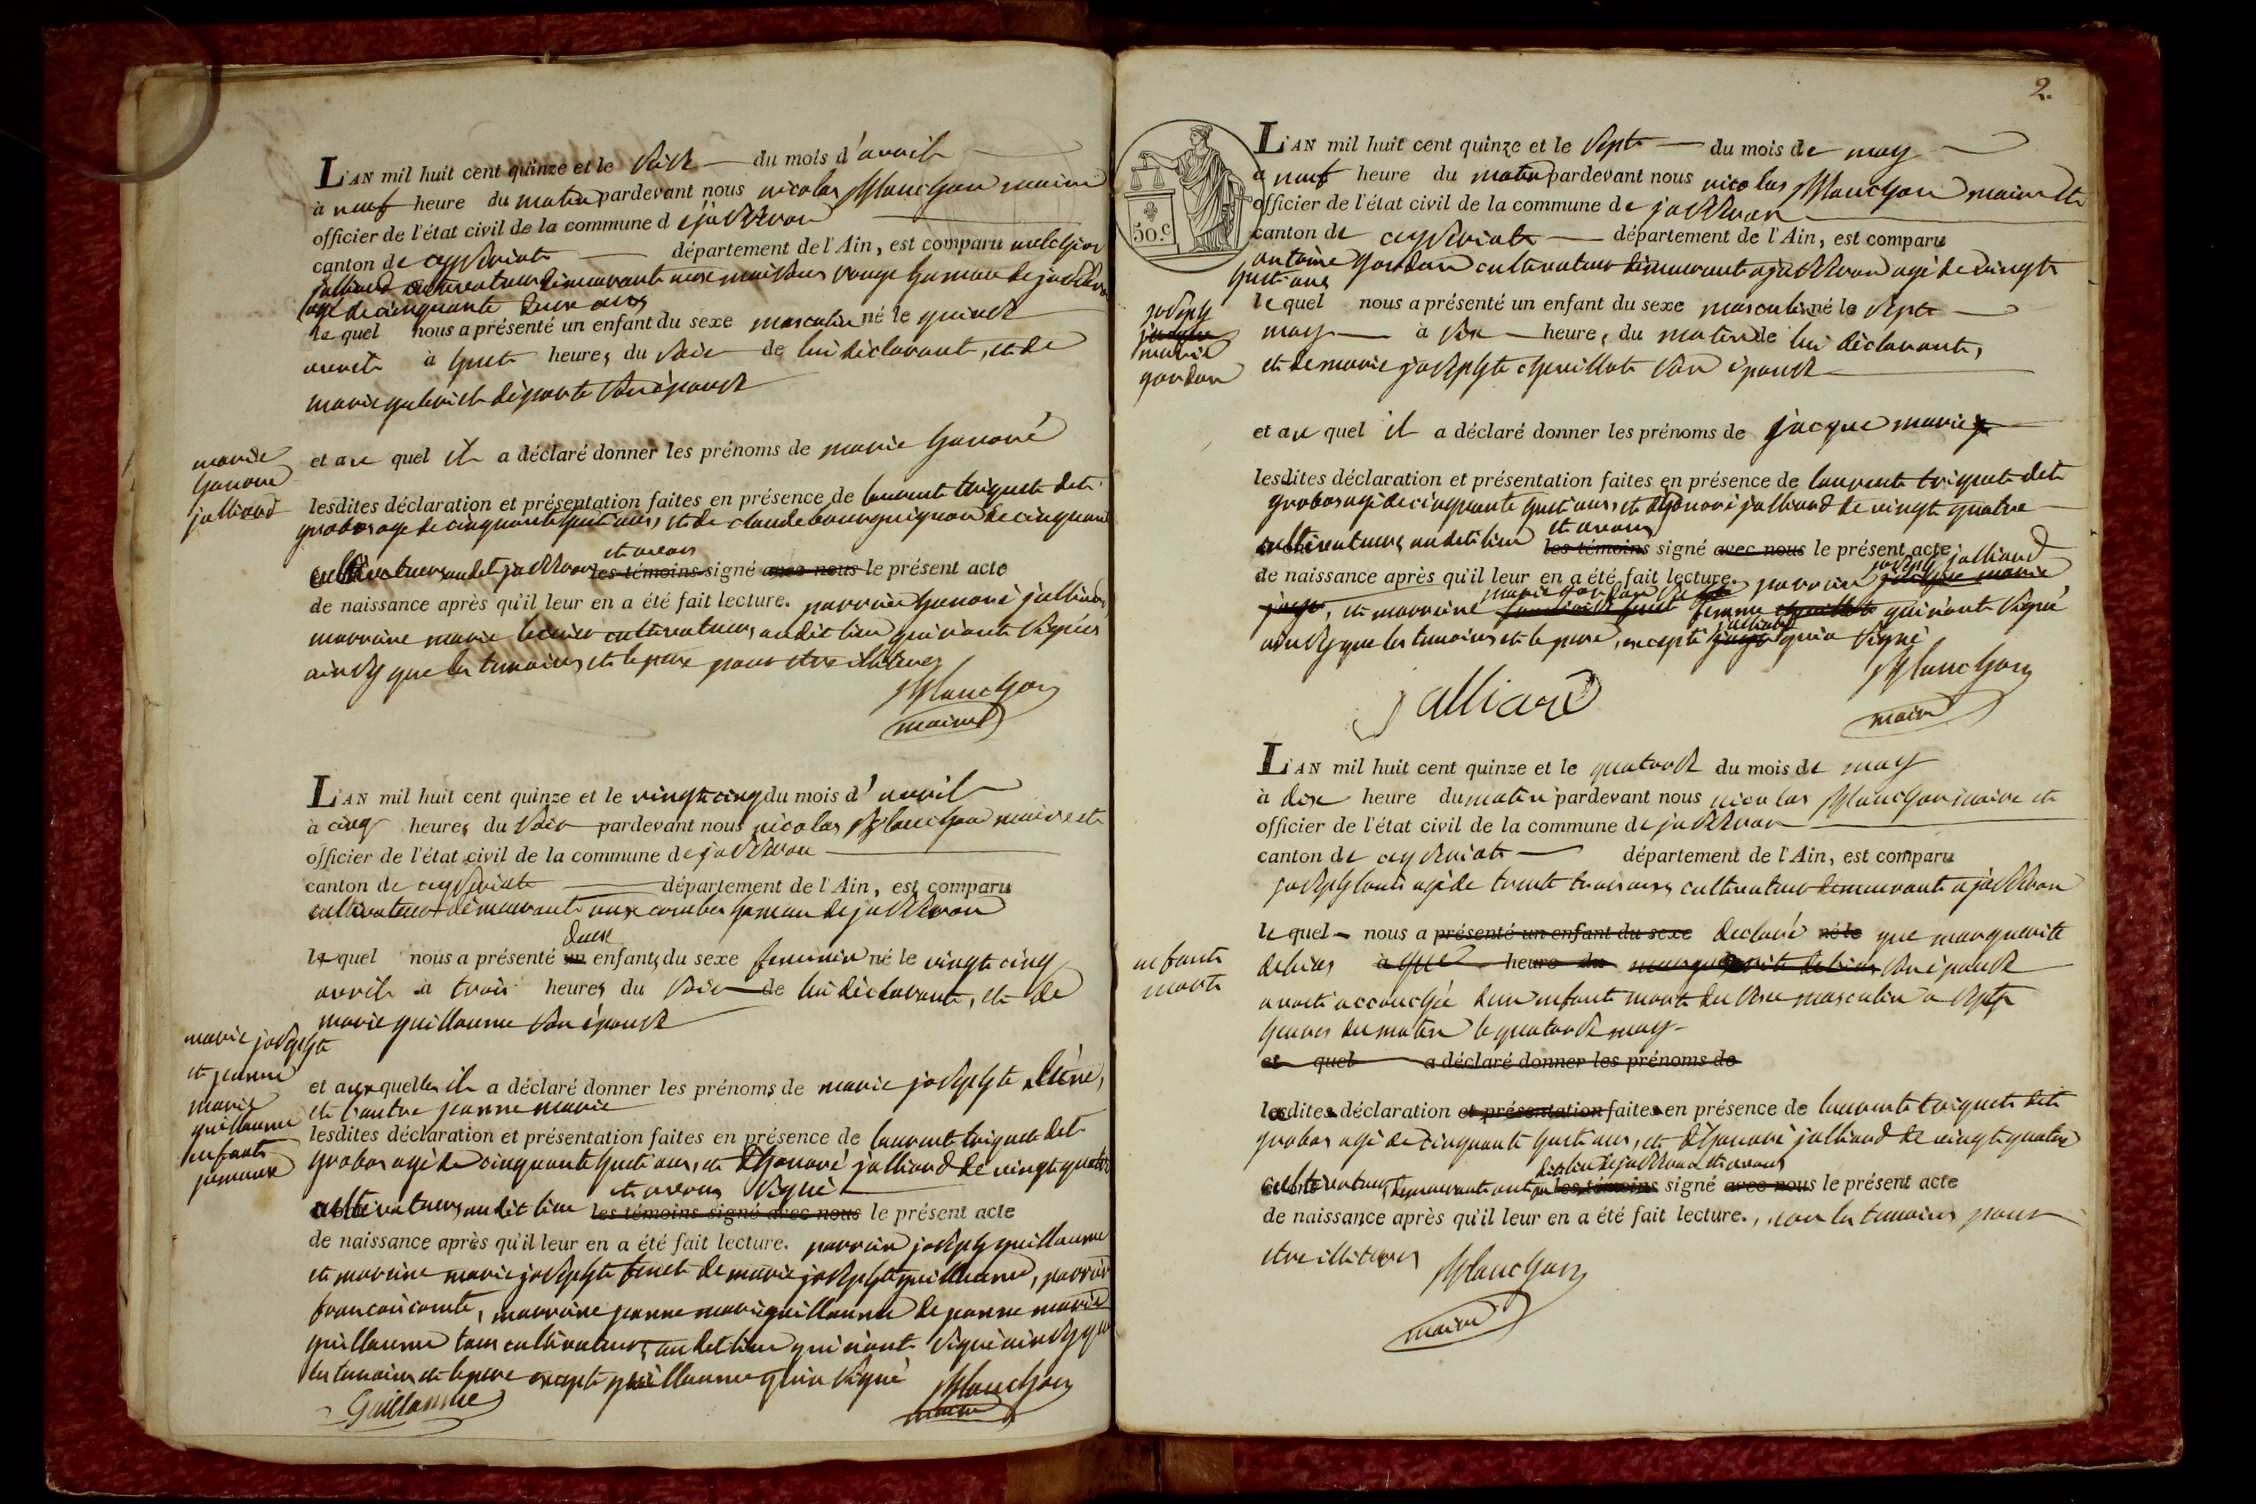 L'AN mil huit cent quinze et le seize du mois d'avril
à neuf heure du matin pardevant nous nicolas Blanchon maire
officier de l'état civil de la commune de jasseron
canton de ceyseriat département de l'Ain, est comparu melchior
julliard cultivateur demeurant aux maisons rouge hameau de jasseron
agé de cinquante deux ans
le quel nous a présenté un enfant du sexe masculin né le quinze
avril à huit heures du soir de lui déclarant, et de
marie son épouse
marie
honoré
julliard
et au quel il a déclaré donner les prénoms de marie honoré
lesdites déclaration et présentation faites en présence de laurent triquet dit
grobos agé de cinquante huit ans, et de claude bourguignon de cinquante
et avons
cultivateurs audit jasseron les témoins signé avec nous le présent acte
de naissance après qu'il leur en a été fait lecture. parrain honoré julliard,
marraine marie cultivateurs audit lieu qui n'ont signés
ainsy que les temoins et le pere pour etre illiterés
Blanchon
maire
L'AN mil huit cent quinze et le vingt cinq du mois d'avril
à cinq heures du soir pardevant nous nicolas Blanchon maire et
officier de l'état civil de la commune de jasseron
canton de ceyseriat département de l'Ain, est comparu
cultivateur demeurant aux combes hameau de jasseron
deux
le quel nous a présenté un enfants du sexe feminin né le vingt cinq
avril à trois heures du soir de lui déclarant, et de
marie guillaume son épouse
marie josephte
et jeanne
marie
guillaume
enfants
jumeaux
et auxquelles il a déclaré donner les prénoms de marie josephte l'une,
et l'autre jeanne marie
lesdites déclaration et présentation faites en présence de laurent triquet dit
grobos agé de cinquante huit ans, et d'honoré julliard de vingt quatre
et avons signé
cultivateurs audit lieu les témoins signé avec nous le présent acte
de naissance après qu'il leur en a été fait lecture. parrain joseph guillaume
et marraine marie josephte de marie josephte guillaume, parrain
francois comte, marraine jeanne marie guillaume de jeanne marie
guillaume tous cultivateurs, audit lieu qui n'ont signé ainsy que
les temoins et le pere excepté guillaume qui a signé
Guillaume
Blanchon
maire
2.
50.c
L'AN mil huit cent quinze et le sept du mois de may
à neuf heure du matin pardevant nous nicolas Blanchon maire et
officier de l'état civil de la commune de jasseron
canton de ceyseriat département de l'Ain, est comparu
antoine gordan cultivateur demeurant a jasseron agé de vingt
huit ans
joseph
marie
gordan
le quel nous a présenté un enfant du sexe masculin né le sept
may à six heure, du matin de lui déclarant,
et de marie josephte chevillot son épouse
et au quel il a déclaré donner les prénoms de jacque marie
lesdites déclaration et présentation faites en présence de laurent triquet dit
grobos agé de cinquante huit ans, et d'honoré julliard de vingt quatre
et avons
cultivateurs, audit lieu les témoins signé avec nous le présent acte
de naissance après qu'il leur en a été fait lecture. parrain joseph julliard
et marraine marie gordan femme qui n'ont signé
ainsy que les temoins et le pere, excepté julliard qui a signé
Blanchon
maire
Jalliard
L'AN mil huit cent quinze et le quatorze du mois de may
à dix heure du matin pardevant nous nicolas Blanchon maire et
officier de l'état civil de la commune de jasseron
canton de ceyseriat département de l'Ain, est comparu
joseph agé de trente trois ans, cultivateur demeurant a jasseron
enfant
mort
le quel nous a présenté un enfant du sexe declaré né le que marguerite
debias à heure du marguerite debias son épouse
avoit accouchée d'un enfant mort du sexe masculin a sept
heures du matin le quatorze may
et quel a déclaré donner les prénoms de
lesdites déclaration et présentation faites en présence de laurent triquet dit
grobos agé de cinquante huit ans, et d'honoré julliard de vingt quatre
dit lieu de jasseron et avons
cultivateurs, demeurant au les témoins signé avec nous le présent acte
de naissance après qu'il leur en a été fait lecture., non les temoins pour
etre illiterés
Blanchon
maire